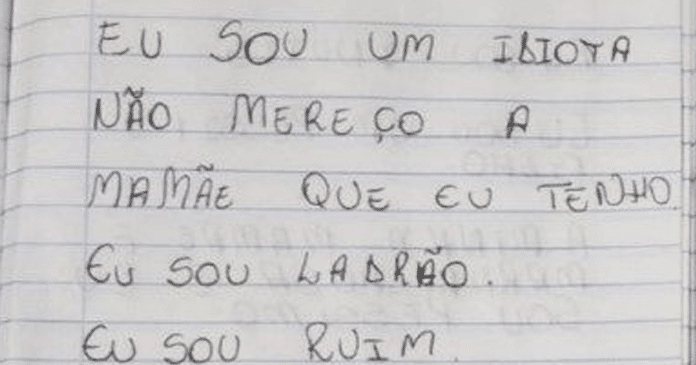 EU SOU UM IDIOTA
NÃO MEREÇO A
MAMÃE QUE EU TENHO.
EU SOU LADRÃO.
EU SOU RUIM.